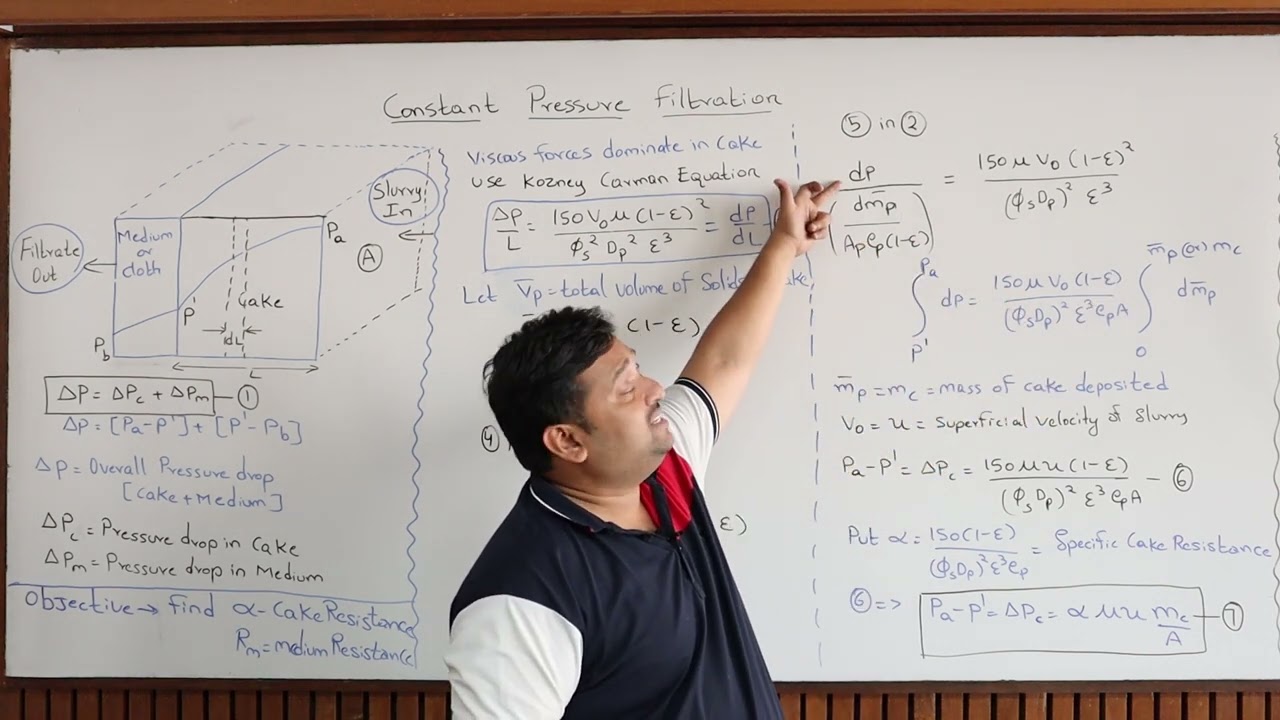 Constant Pressure Filtration
Slurry In
Filtrate Out
Medium or cloth
Cake
Pa
P'
Pb
dL
L
A
ΔP = ΔPc + ΔPm — ①
ΔP = [Pa - P'] + [P' - Pb]
ΔP = Overall Pressure drop
[Cake + Medium]
ΔPc = Pressure drop in Cake
ΔPm = Pressure drop in Medium
Objective → find α - Cake Resistance
Rm = medium Resistance
Viscous forces dominate in Cake
use Kozney Carman Equation
ΔP/L = 150 V₀ μ (1-ε)² / Φs² Dp² ε³ = dP/dL
Let V̄p = total volume of Solids
(1-ε)
④
ε)
⑤ in ②
dp / (dm̄p / Ap ρp (1-ε)) = 150 μ V₀ (1-ε)² / (ΦsDp)² ε³
∫ P' Pa dp = 150 μ V₀ (1-ε) / (ΦsDp)² ε³ ρp A ∫ 0 m̄p (or) mc dm̄p
m̄p = mc = mass of cake deposited
V₀ = u = Superficial velocity of Slurry
Pa - P' = ΔPc = 150 μ u (1-ε) / (ΦsDp)² ε³ ρp A — ⑥
Put α = 150 (1-ε) / (ΦsDp)² ε³ ρp = Specific Cake Resistance
⑥ => Pa - P' = ΔPc = α μ u mc / A — ⑦